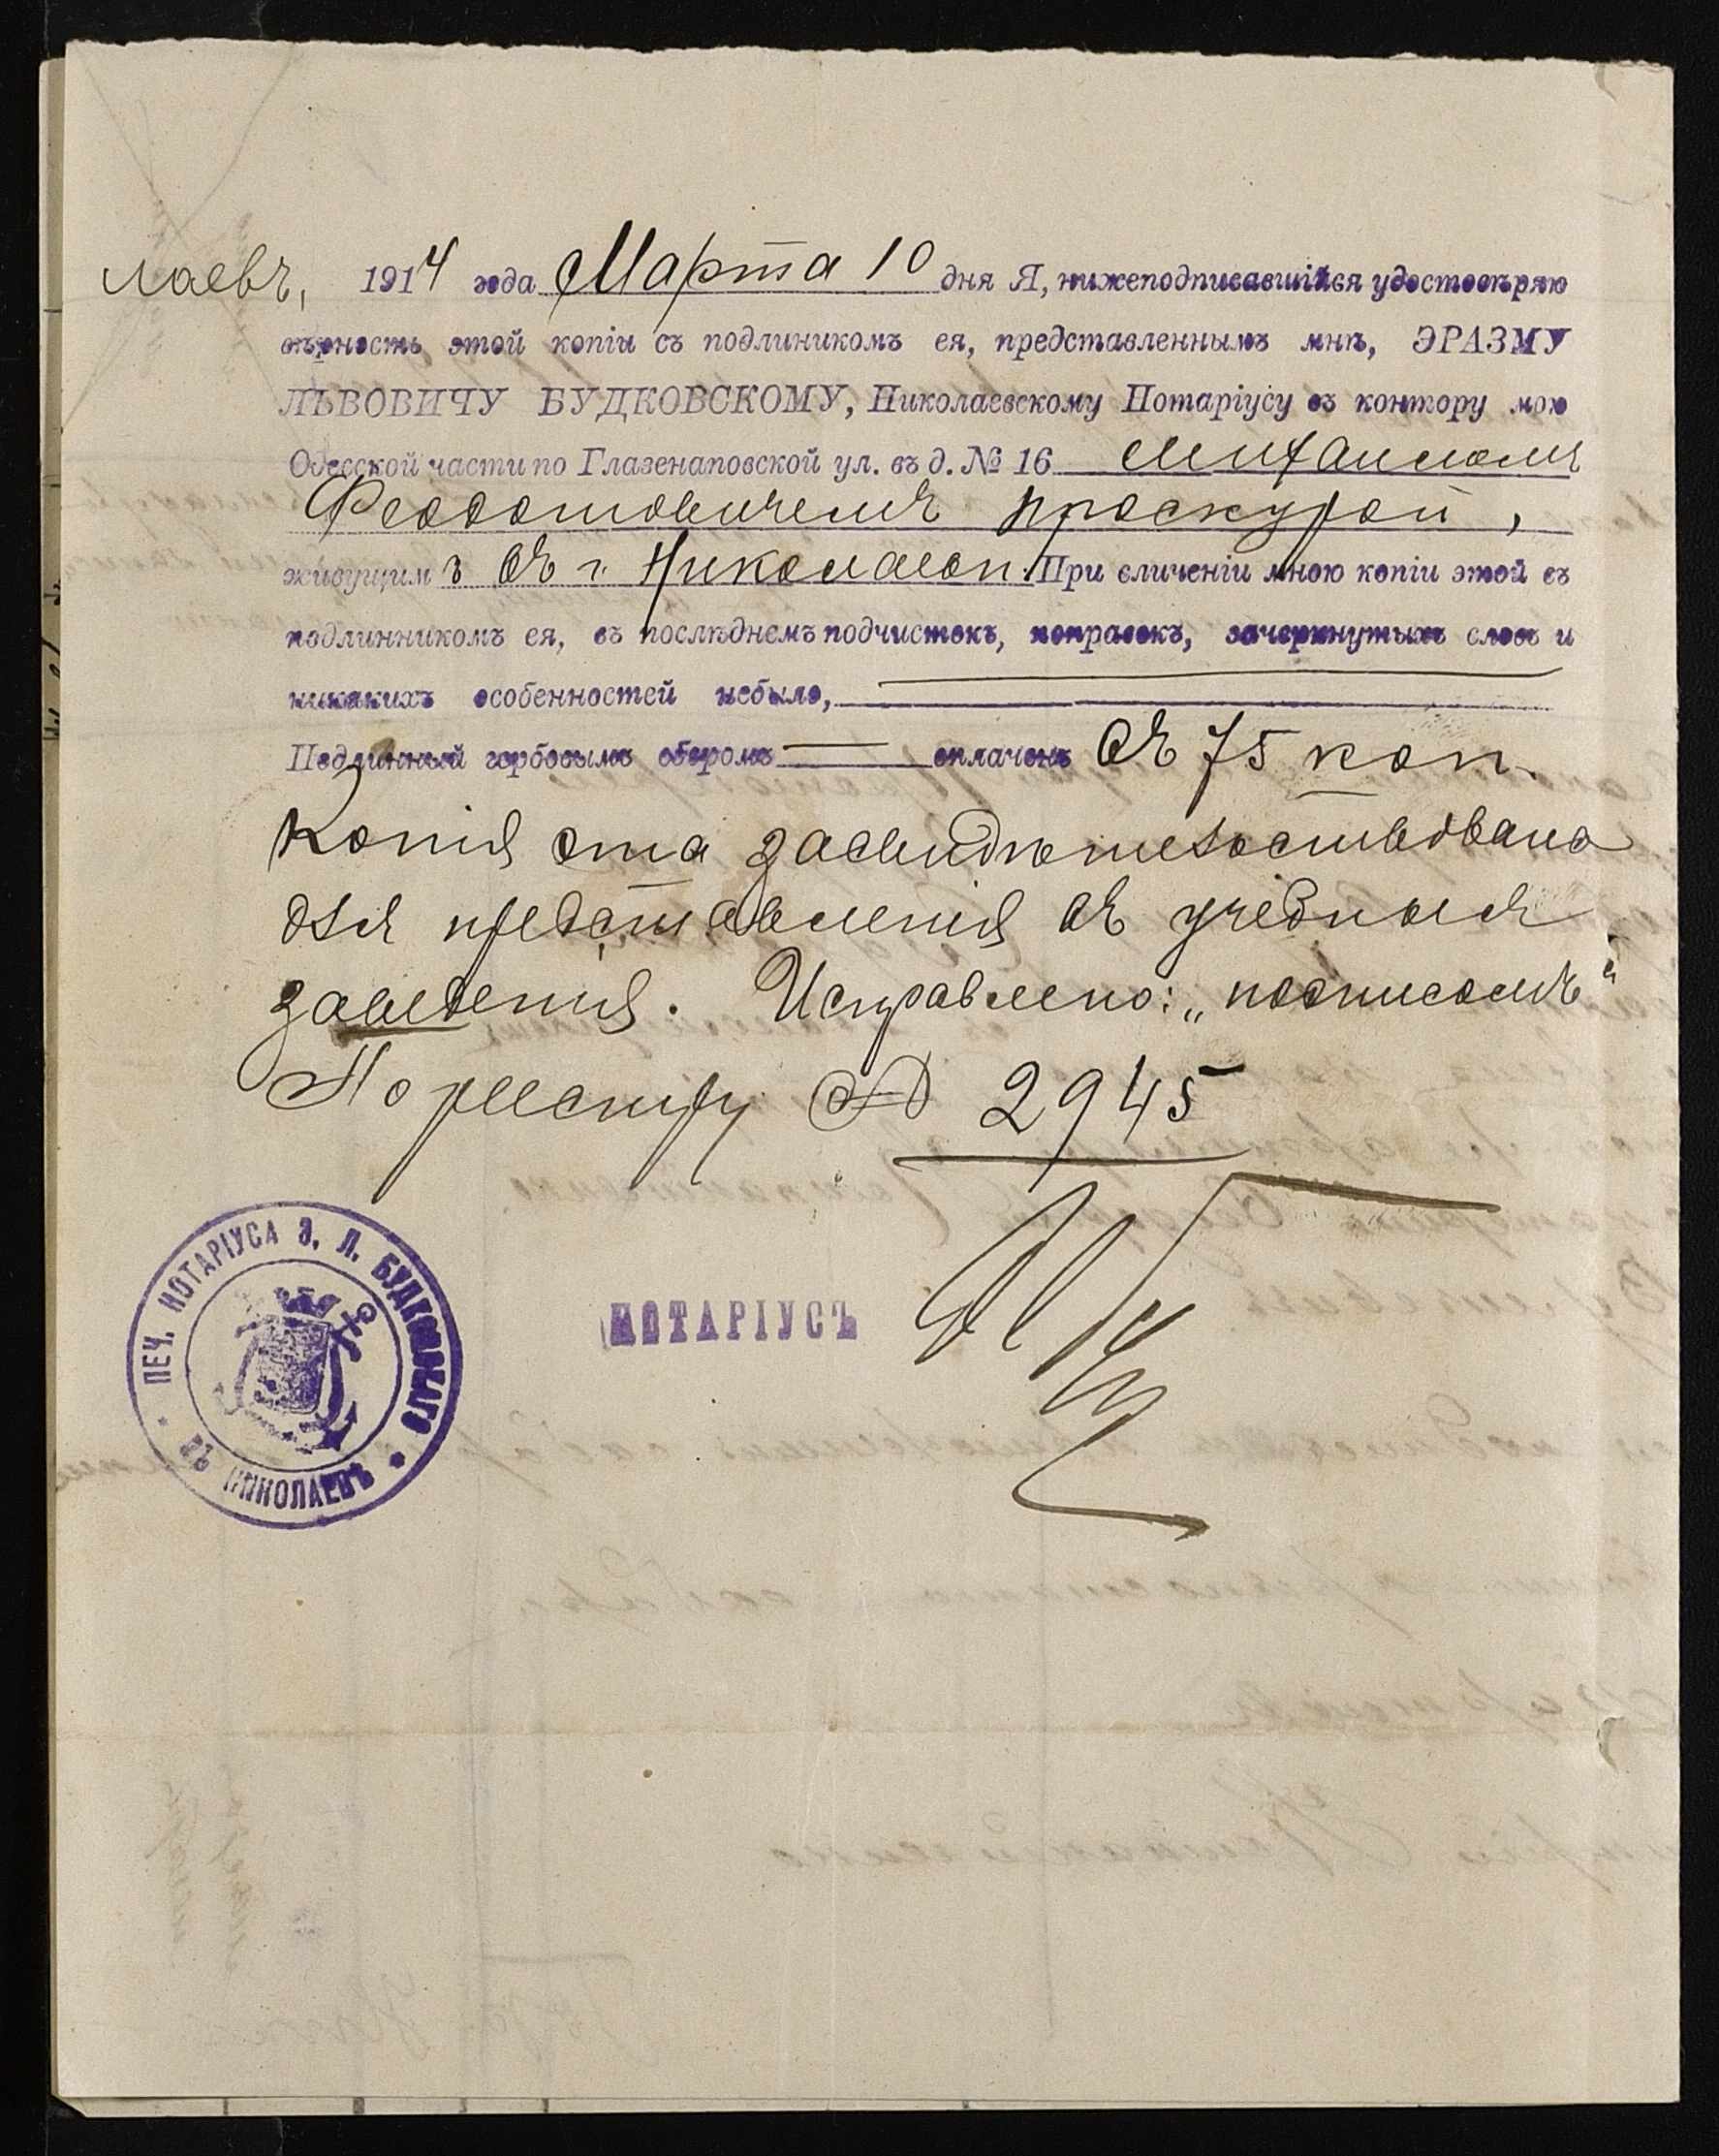 лаевъ, 1914 года Марта 10 дня Я, нижеподписавшійся удостовѣряю
вѣрность этой копіи съ подлиникомъ ея, представленнымъ мнѣ, ЭРАЗМУ
ЛЬВОВИЧУ БУДКОВСКОМУ, Николаевскому Нотаріусу въ контору мою
Одесской части по Глазенаповской ул. въ д. № 16 Михаиломъ
Феодотовичемъ Проскурой,
живущимъ въ г. Николаевѣ. При сличеніи мною копіи этой съ
подлинникомъ ея, въ послѣднемъ подчистокъ, поправокъ, зачеркнутыхъ словъ и
никакихъ особенностей небыло,
Подлинный гербовымъ сборомъ — оплаченъ въ 75 коп.
Копія эта засвидѣтельствована
для представленія въ учебныя
заведенія. Исправлено: „подписомъ“
По реестру № 2945
ПЕЧ. НОТАРІУСА Э. Л. БУДКОВСКАГО
ВЪ НИКОЛАЕВѢ
НОТАРІУСЪ